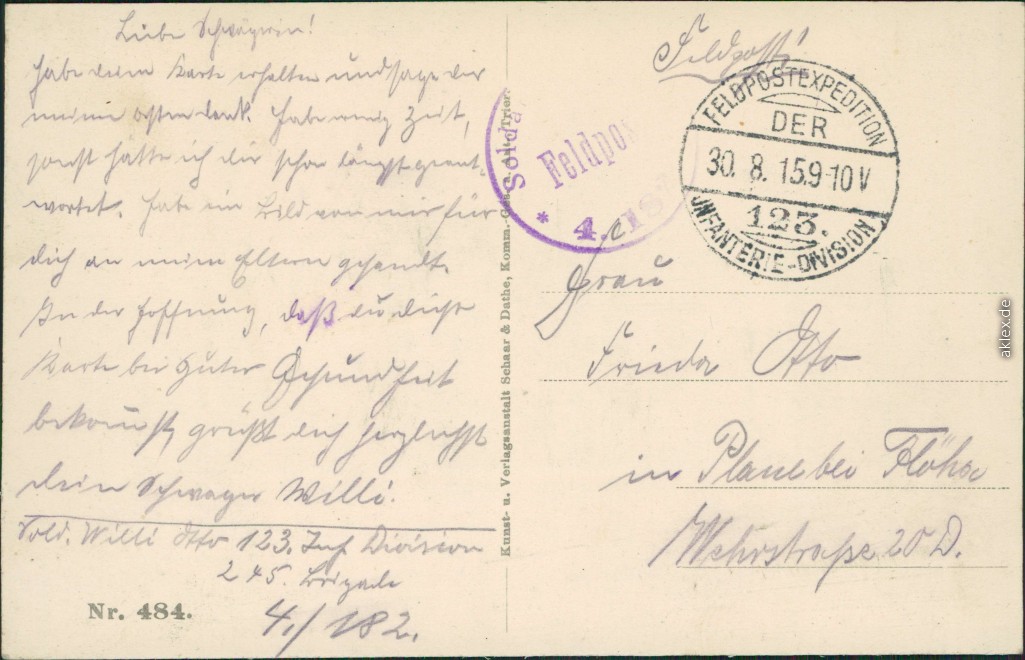 Liebe Schwägerin!
Habe deine Karte erhalten und sage dir
meinen besten dank. Habe wenig Zeit,
sonst hätte ich dir schon längst geant-
wortet. Habe ein Bild von mir für
dich an meine Eltern gesandt.
In der Hoffnung, daß du diese
Karte bei guter Gesundheit
bekommst, grüßt dich herzlichst
dein Schwager Willi.
Sold. Willi Otto 123. Inf. Division
245. Brigade
4./182.
Nr. 484.
Kunst- u. Verlagsanstalt Schaar & Dathe, Komm.-Ges. a. Trier.
Feldpost!
Sold
Feldpos
* 4.
FELDPOSTEXPEDITION
DER
30. 8. 15.9-10 V
123.
INFANTERIE-DIVISION
Frau
Frieda Otto
in Plaue bei Flöha
Wehrstraße 20 D.
aklex.de